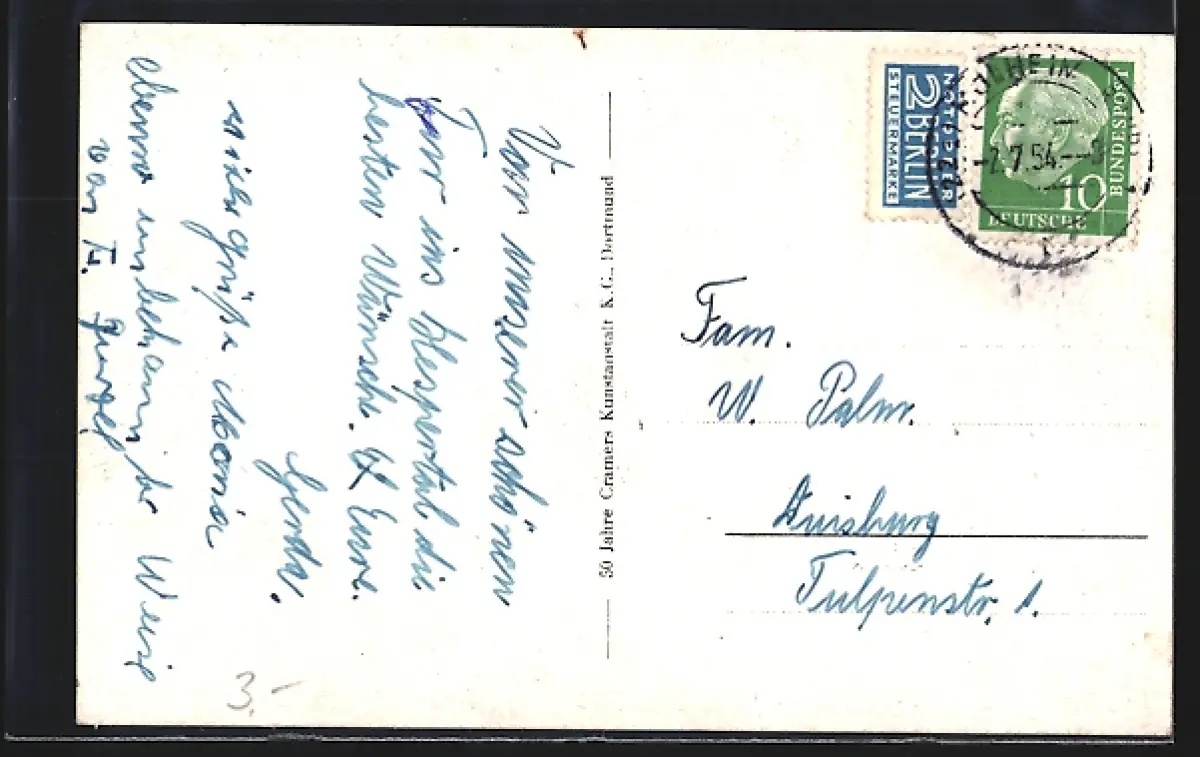 Von unserer schönen
Tour ins Hespertal die
besten Wünsche. Eure
Gerda.
viele Grüße Maria
ebenso unbekannter Weise
von
50 Jahre Cramers Kunstanstalt K.G., Dortmund
NOTOPFER
2 BERLIN
STEUERMARKE
DEUTSCHE
BUNDESPOST
10
-2.7.54.--
Fam.
W. Palm.
Duisburg
Tulpenstr. 1.
3.-